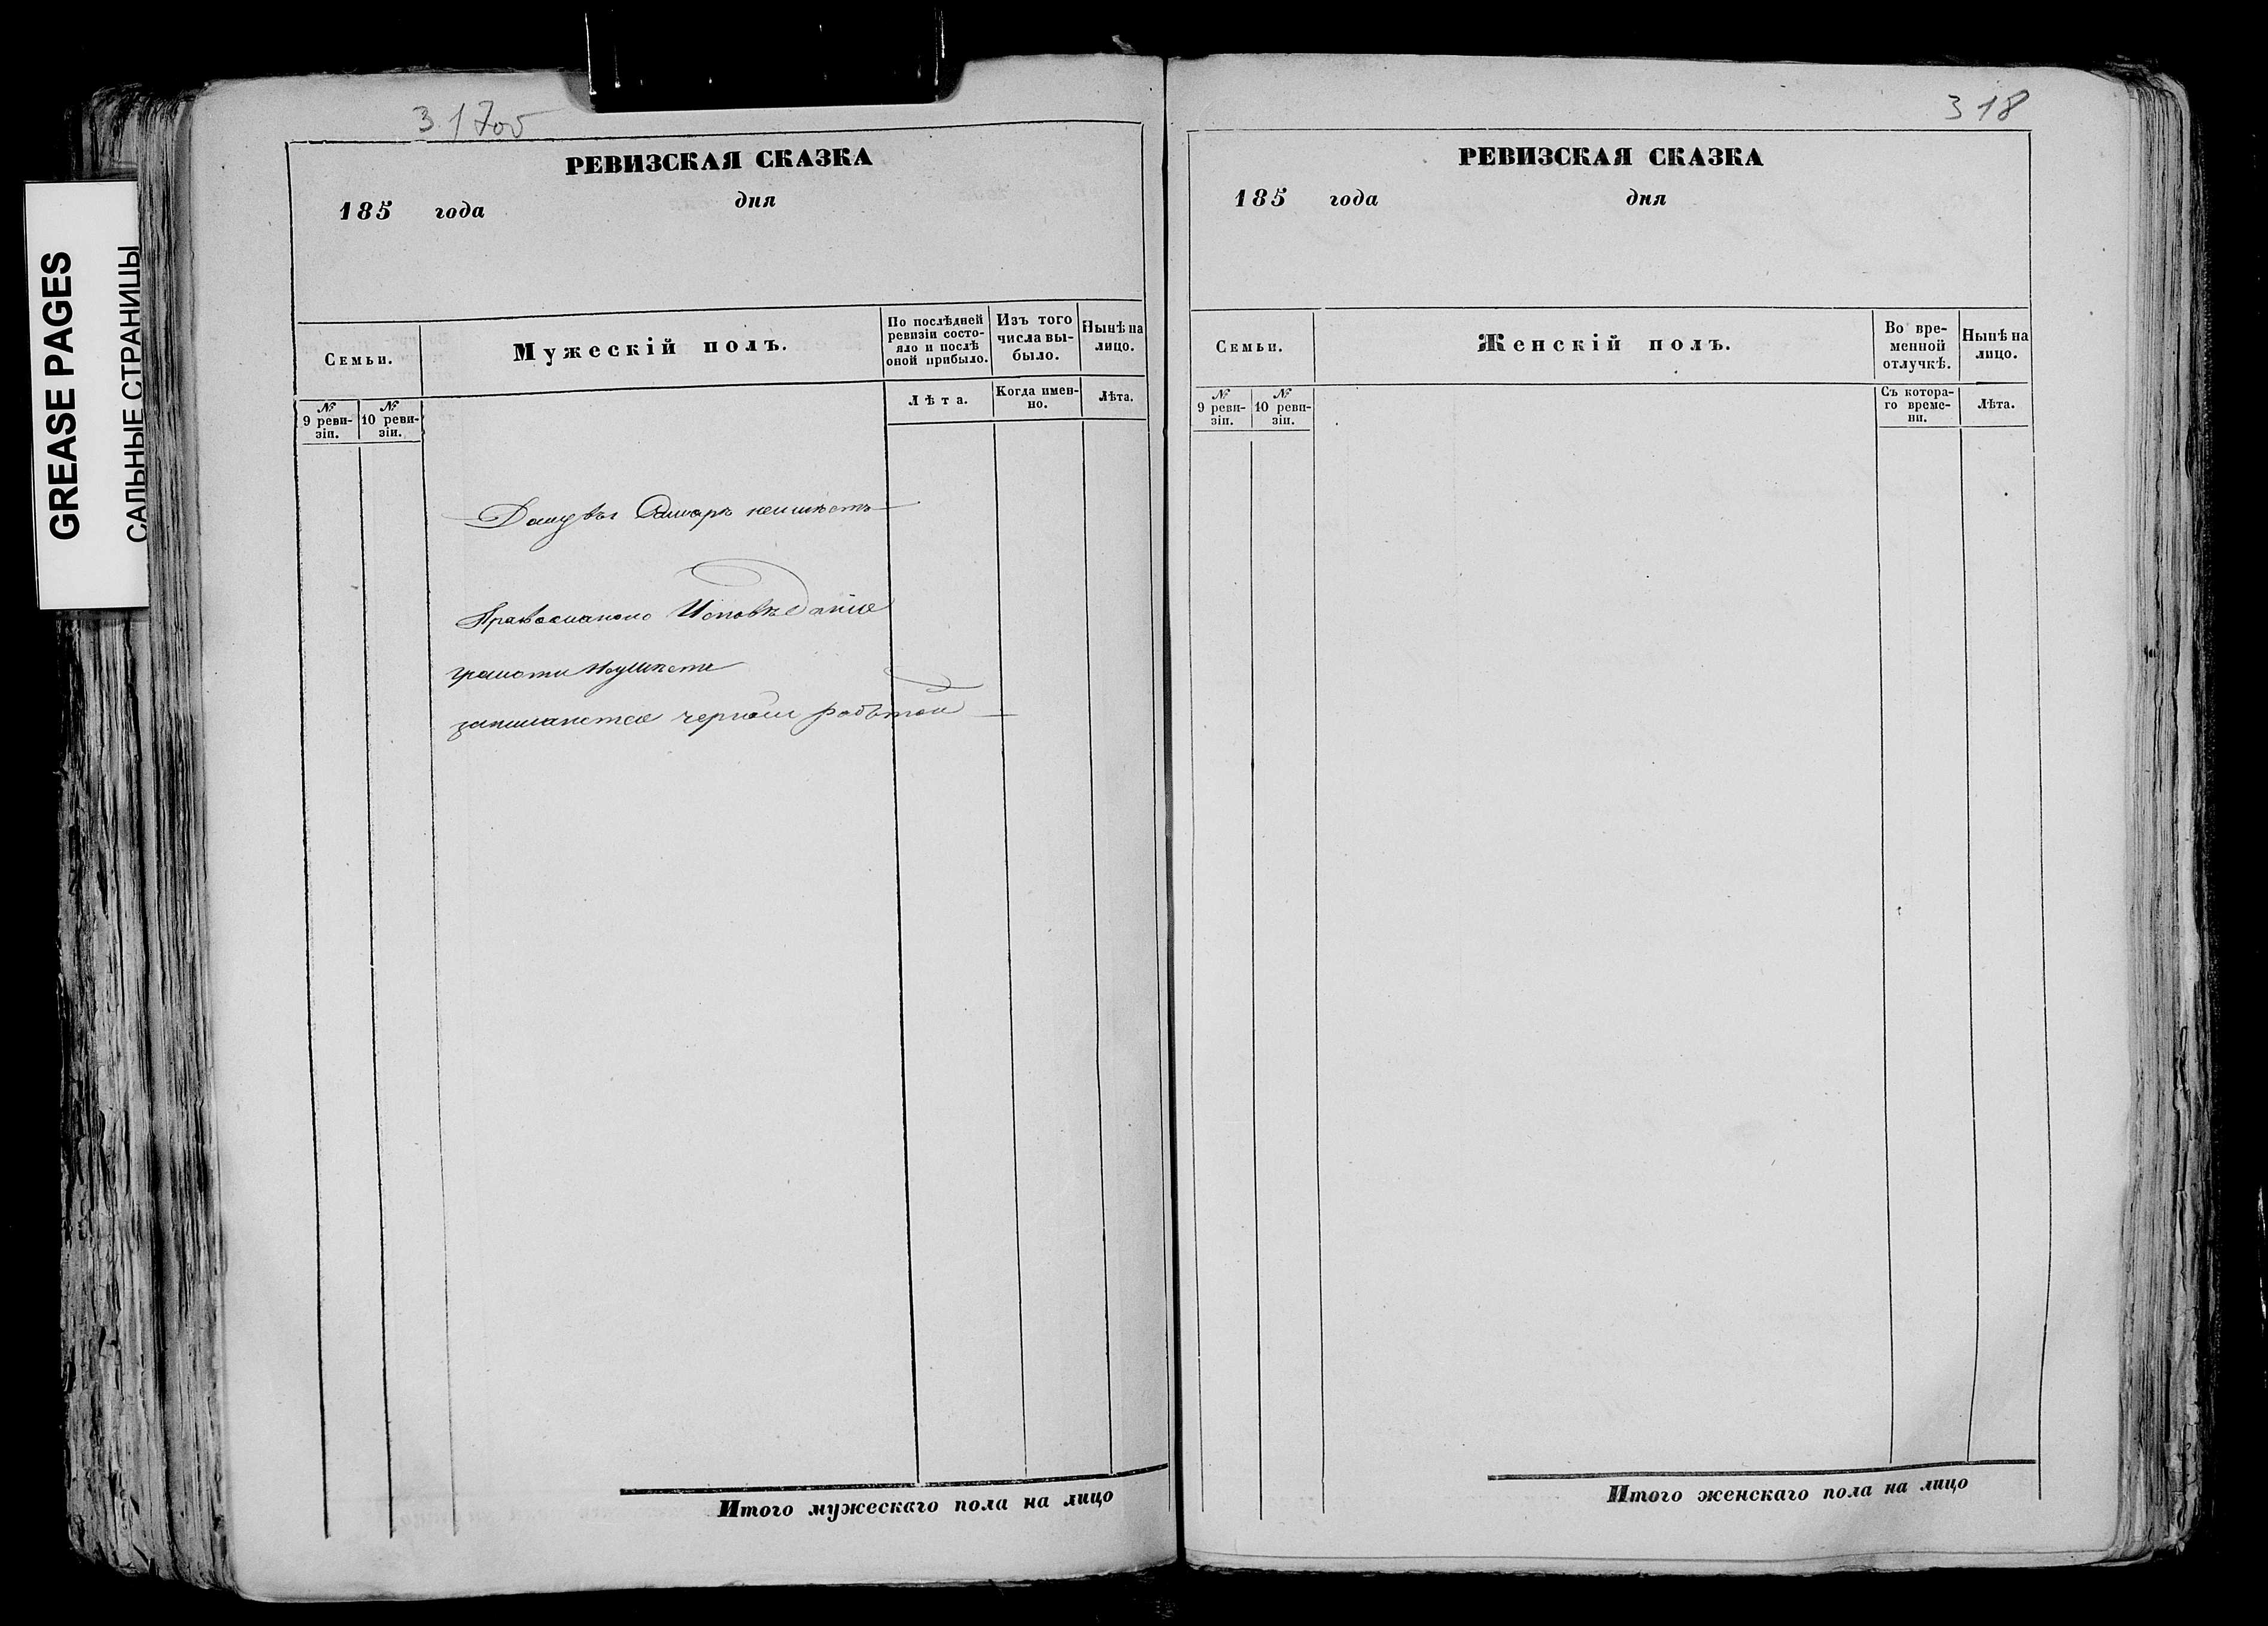 GREASE PAGES
САЛЬНЫЕ СТРАНИЦЫ
317об
РЕВИЗСКАЯ СКАЗКА
185 года дня
Семьи.
Мужескій полъ.
По послѣдней ревизіи состо-
яло и послѣ
оной прибыло.
Изъ того
числа вы-
было.
Нынѣ на
лицо.
№
9 реви-
зіи.
№
10 реви-
зіи.
Лѣта.
Когда имен-
но.
Лѣта.
Дому въ Самарѣ неимѣетъ
Православного Исповѣданія
грамоти неумѣетъ
занимается черной работой
Итого мужескаго пола на лицо
318
РЕВИЗСКАЯ СКАЗКА
185 года дня
Семьи.
Женскій полъ.
Во вре-
менной
отлучкѣ.
Нынѣ на
лицо.
№
9 реви-
зіи.
№
10 реви-
зіи.
Съ котора-
го време-
ни.
Лѣта.
Итого женскаго пола на лицо